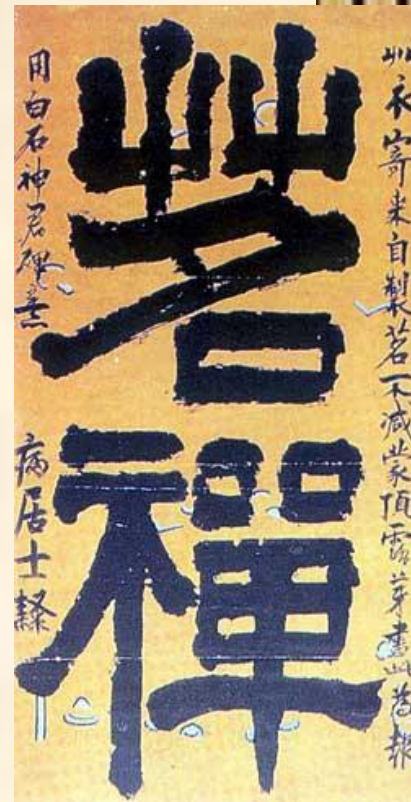 艸衣寄来自製茗不減蒙頂露芽書此為報
茗禪
用白石神君碑意
病居士隸